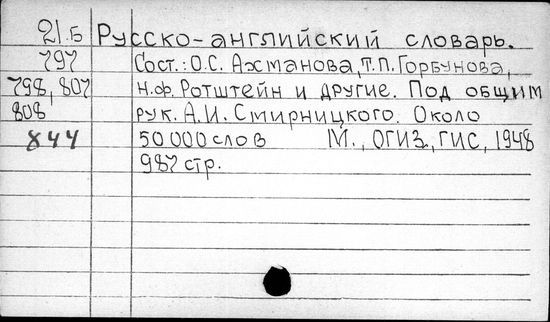 21.Б Русско-английский словарь.
797 Сост.: О.С. Ахманова, Т.П. Горбунова,
798, 807 Н.Ф. Ротштейн и другие. Под общим
808 рук. А.И. Смирницкого. Около
844 50 000 слов М., ОГИЗ, ГИС, 1948
987 стр.